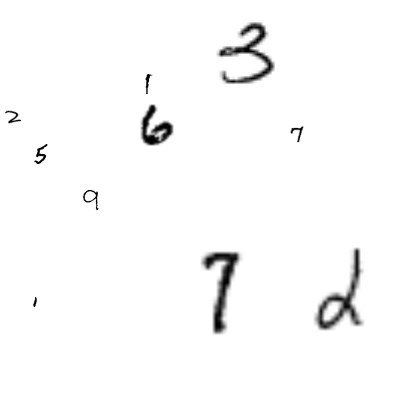 3
1
2 6 7
5
9
7
1